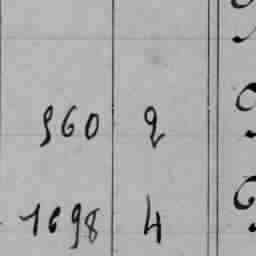 960 2
1698 4